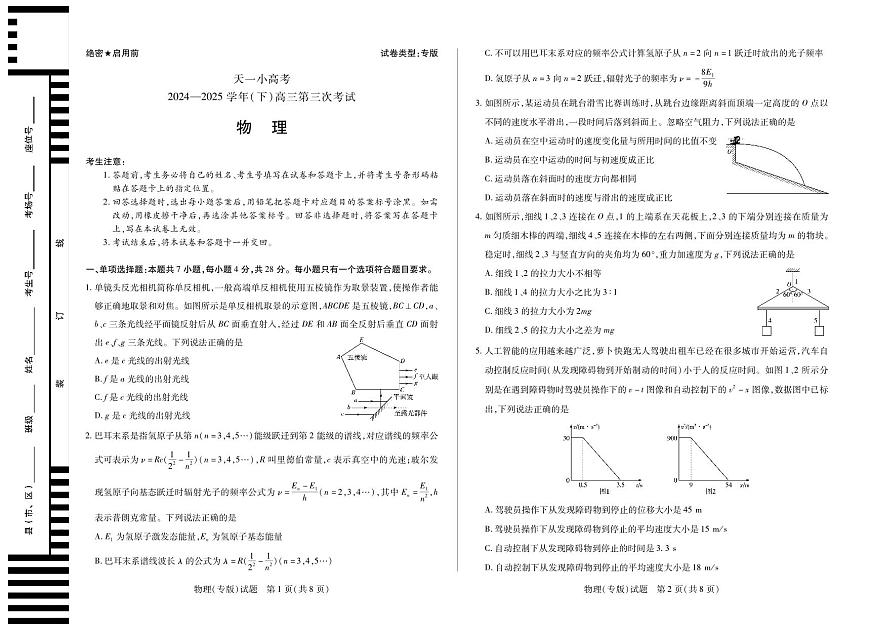 绝密★启用前
试卷类型:专版
天一小高考
2024—2025 学年(下)高三第三次考试
物 理
考生注意:
1. 答题前,考生务必将自己的姓名、考生号填写在试卷和答题卡上,并将考生号条形码粘
贴在答题卡上的指定位置。
2. 回答选择题时,选出每小题答案后,用铅笔把答题卡对应题目的答案标号涂黑。如需
改动,用橡皮擦干净后,再选涂其他答案标号。回答非选择题时,将答案写在答题卡
上,写在本试卷上无效。
3. 考试结束后,将本试卷和答题卡一并交回。
一、单项选择题:本题共 7 小题,每小题 4 分,共 28 分。每小题只有一个选项符合题目要求。
1. 单镜头反光相机简称单反相机,一般高端单反相机使用五棱镜作为取景装置,使操作者能
够正确地取景和对焦。如图所示是单反相机取景的示意图,ABCDE 是五棱镜,BC⊥CD,a、
b、c 三条光线经平面镜反射后从 BC 面垂直射入,经过 DE 和 AB 面全反射后垂直 CD 面射
出 e、f、g 三条光线。下列说法正确的是
A. e 是 c 光线的出射光线
B. f 是 a 光线的出射光线
C. f 是 c 光线的出射光线
D. g 是 c 光线的出射光线
E
A 五棱镜 D
e
f 至人眼
g
B C
a 平面镜
b
c 至感光部件
2. 巴耳末系是指氢原子从第 n(n=3,4,5…)能级跃迁到第 2 能级的谱线,对应谱线的频率公
式可表示为 ν=Rc(1/2²−1/n²)(n=3,4,5…),R 叫里德伯常量,c 表示真空中的光速;玻尔发
现氢原子向基态跃迁时辐射光子的频率公式为 ν=(Eₙ−E₁)/h(n=2,3,4…),其中 Eₙ=E₁/n²,h
表示普朗克常量。下列说法正确的是
A. E₁ 为氢原子激发态能量,Eₙ 为氢原子基态能量
B. 巴耳末系谱线波长 λ 的公式为 λ=R(1/2²−1/n²)(n=3,4,5…)
物理(专版)试题 第 1 页(共 8 页)
C. 不可以用巴耳末系对应的频率公式计算氢原子从 n=2 向 n=1 跃迁时放出的光子频率
D. 氢原子从 n=3 向 n=2 跃迁,辐射光子的频率为 ν=−8E₁/9h
3. 如图所示,某运动员在跳台滑雪比赛训练时,从跳台边缘距离斜面顶端一定高度的 O 点以
不同的速度水平滑出,一段时间后落到斜面上。忽略空气阻力,下列说法正确的是
A. 运动员在空中运动时的速度变化量与所用时间的比值不变
B. 运动员在空中运动的时间与初速度成正比
C. 运动员落在斜面时的速度方向都相同
D. 运动员落在斜面时的速度与滑出的速度成正比
O
4. 如图所示,细线 1、2、3 连接在 O 点,1 的上端系在天花板上,2、3 的下端分别连接在质量为
m 匀质细木棒的两端,细线 4、5 连接在木棒的左右两侧,下面分别连接质量均为 m 的物块。
稳定时,细线 2、3 与竖直方向的夹角均为 60°,重力加速度为 g,下列说法正确的是
A. 细线 1、2 的拉力大小不相等
B. 细线 1、4 的拉力大小之比为 3∶1
C. 细线 3 的拉力大小为 2mg
D. 细线 2、5 的拉力大小之差为 mg
O 1
2 60° 60° 3
4 5
5. 人工智能的应用越来越广泛,萝卜快跑无人驾驶出租车已经在很多城市开始运营,汽车自
动控制反应时间(从发现障碍物到开始制动的时间)小于人的反应时间。如图 1、2 所示分
别是在遇到障碍物时驾驶员操作下的 v−t 图像和自动控制下的 v²−x 图像,数据图中已标
出,下列说法正确的是
v/(m·s⁻¹)
30
0 0.5 3.5 t/s
图1
v²/(m²·s⁻²)
900
0 9 54 x/m
图2
A. 驾驶员操作下从发现障碍物到停止的位移大小是 45 m
B. 驾驶员操作下从发现障碍物到停止的平均速度大小是 15 m/s
C. 自动控制下从发现障碍物到停止的时间是 3.3 s
D. 自动控制下从发现障碍物到停止的平均速度大小是 18 m/s
物理(专版)试题 第 2 页(共 8 页)
县(市、区)
班级
姓名
考生号
考场号
座位号
装
订
线